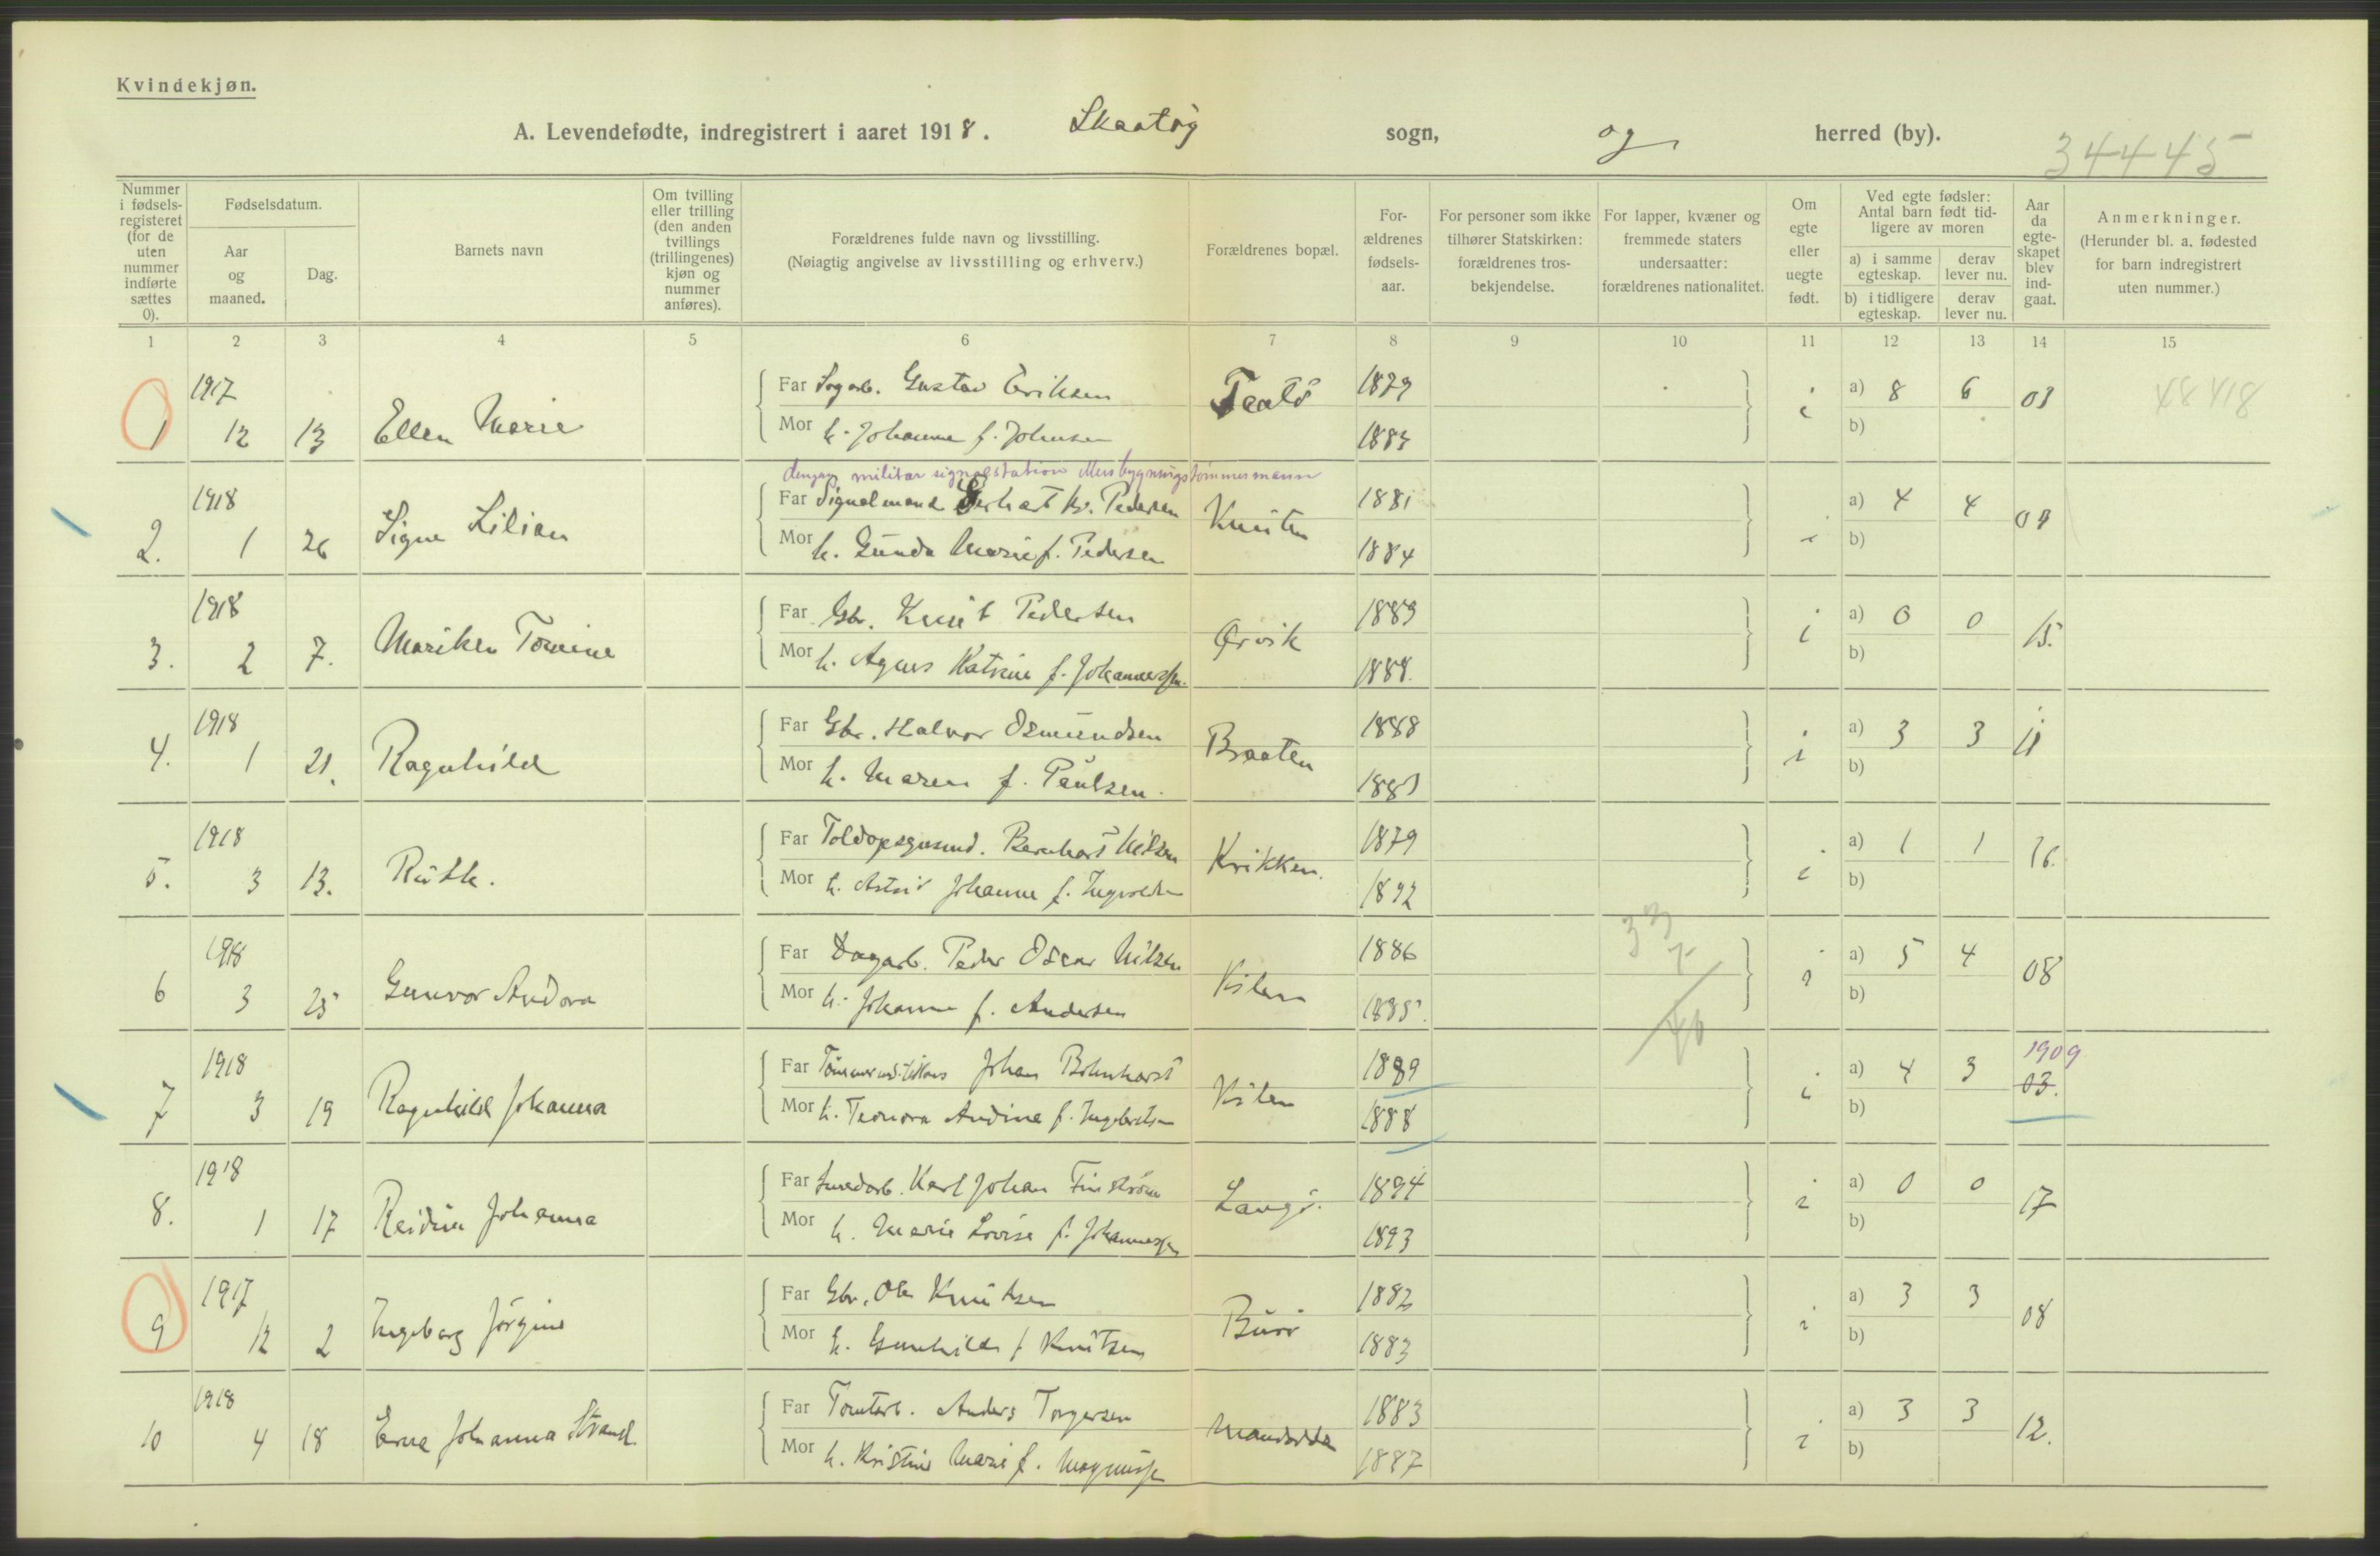 Kvindekjøn.
A. Levendefødte, indregistrert i aaret 1918. Skaatøy sogn, og herred (by).
34445
Nummer i fødselsregisteret (for de uten nummer indførte sættes 0).
Fødselsdatum.
Aar og maaned.
Dag.
Barnets navn
Om tvilling eller trilling (den anden tvillings (trillingenes) kjøn og nummer anføres).
Forældrenes fulde navn og livsstilling.
(Nøiagtig angivelse av livsstilling og erhverv.)
Forældrenes bopæl.
Forældrenes fødselsaar.
For personer som ikke tilhører Statskirken: forældrenes trosbekjendelse.
For lapper, kvæner og fremmede staters undersaatter: forældrenes nationalitet.
Om egte eller uegte født.
Ved egte fødsler: Antal barn født tidligere av moren
a) i samme egteskap. derav lever nu.
b) i tidligere egteskap. derav lever nu.
Aar da egteskapet blev indgaat.
Anmerkninger.
(Herunder bl. a. fødested for barn indregistrert uten nummer.)
1 2 3 4 5 6 7 8 9 10 11 12 13 14 15
1917 Far Gustav Eriksen 1879 a) 8 6 03
1 12 13 Ellen Marie Mor h. Johanne f. Johnsen 1883 b)
militær signalstation
1918 Far Signalmand Pedersen 1881 a) 4 4 09
2. 1 26 Signe Lilian Mor h. Gunda Marie f. Pedersen 1884 b)
1918 Far Gbr. Knut Pedersen Ørvik 1889 i a) 0 0 15.
3. 2 7. Mariken Tomine Mor h. Agnes Katrine f. Johannessen. 1888. b)
1918 Far Gbr. Halvor Osmundsen Braaten 1888 i a) 3 3 11
4. 1 21. Ragnhild Mor h. Maren f. Paulsen. b)
1918 Far Bernhart Nilsen Krikken. 1879 i a) 1 1 16.
5. 3 13. Ruth. Mor h. Astrid Johanne f. Ingvoldsen 1892 b)
1918 Far Dagarb. Peder Oscar Nilsen Kilen 1886 a) 5 4 08
6 3 25 Gunvor Andora Mor h. Johanne f. Andersen 1885. b)
1918 Far Johan Kilen 1889 i a) 4 3 1909 03.
7 3 19 Ragnhild Johanna Mor h. Teonora Andine f. Ingebretsen 1888 b)
1918 Far Karl Johan Langø. 1894 i a) 0 0 17
8. 1 17 Reidun Johanna Mor h. Marie Lovise f. Johannessen 1893 b)
1917 Far Gbr. Ole Knutsen 1882 i a) 3 3 08
9 12 2 Ingeborg Jørgine Mor h. Gunhild f. Knutsen 1883 b)
1918 Far Tomtarb. Anders Torgersen 1883 i a) 3 3 12.
10 4 18 Erna Johanna Strand Mor h. Kristine Marie f. Magnussen 1887 b)